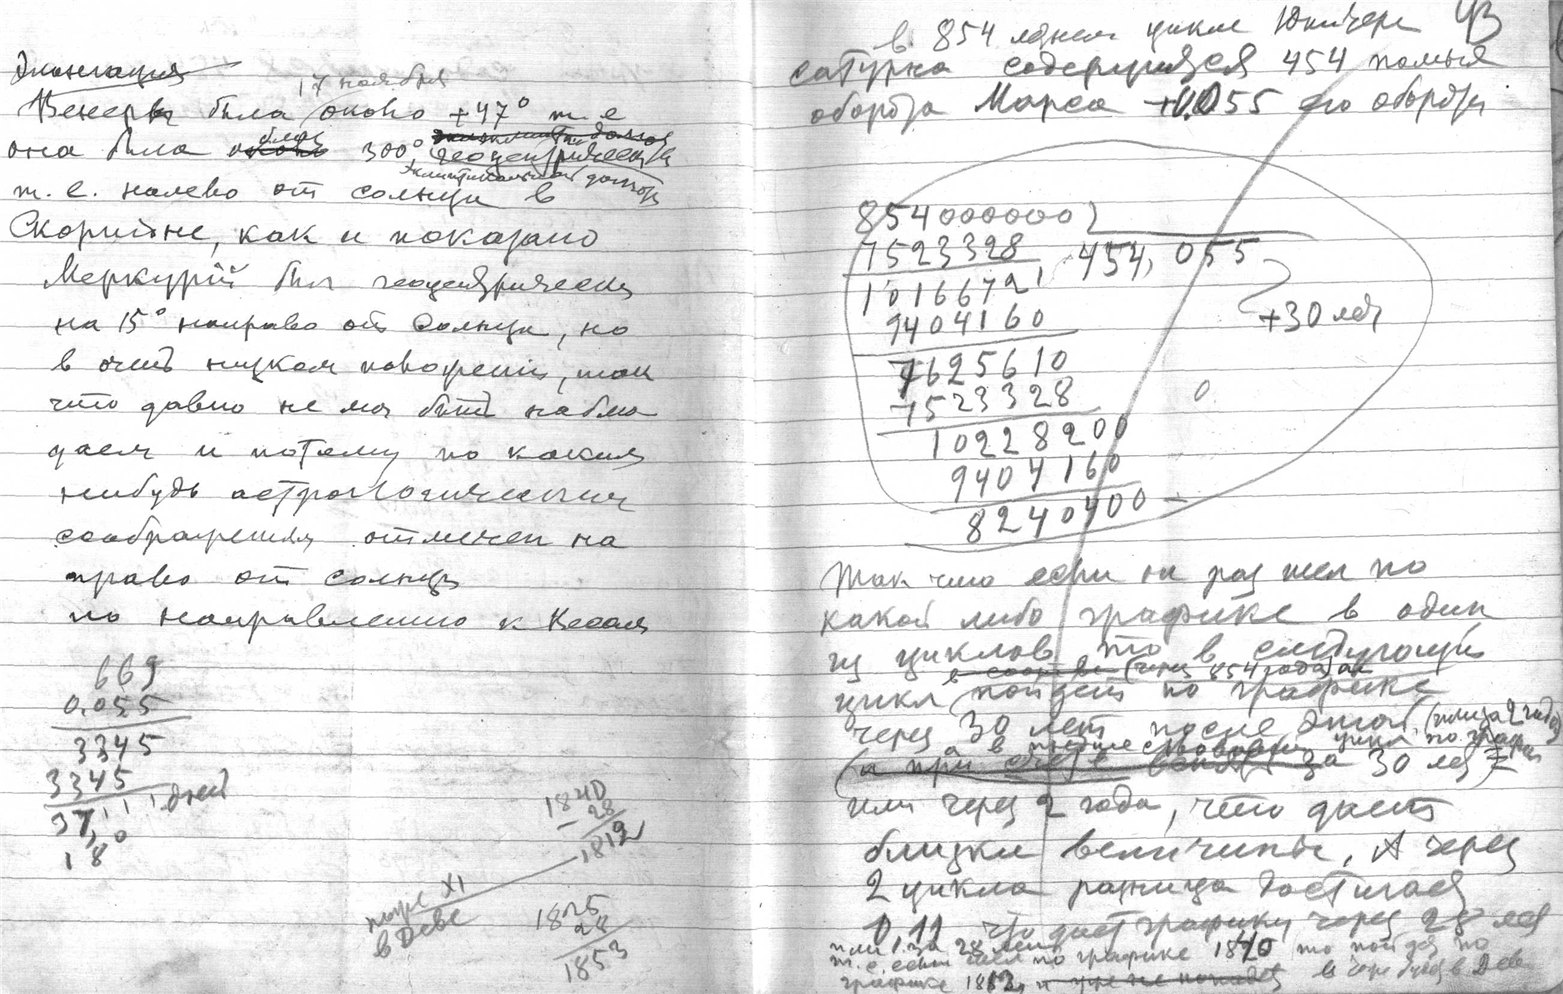 Элонгация
17 ноября
Венеры была около +47° т.е
она была близ 300° геоцентрической
эклиптикальной долготы
т.е. налево от солнца в
Скорпионе, как и показано
Меркурий был геоцентрически
на 15° направо от Солнца, но
в очень низком положении, так
что давно не мог быть наблю
даем и потому по каким
нибудь астрологическим
соображениям отмечен на
право от солнца
по направлению к Весам
669
0.055
3345
3345
37 дней
18°
1840
28
1812
XI
в Деве
1825
28
1853
93
в 854 летнем цикле Юпитера
сатурна содержится 454 полных
оборота Марса +0.055 его оборота
854000000
7523328 454,055
10166721
9404160 +30 лет
7625610
7523328
10228200
9404160
8240400
Так что если он раз шел по
какой либо графике в один
из циклов то в следующий
(через 854 года)
цикл пойдет по графике
через 30 лет после этой
(а при за 30 лет
или через 2 года, что дает
близкие величины, А через
2 цикла разница достигает
0,11 что дает графику через 28 лет
или за 28 лет
т.е. если шел по графике 1840 то пойдет по
графике 1812, и уже не попадет